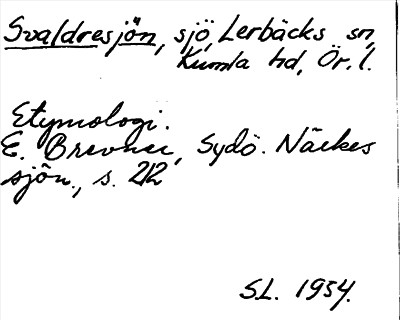 Svaldresjön, sjö, Lerbäcks sn,
Kumla hd, Ör. l.
Etymologi.
E. Brevner, Sydö. Närkes
sjön., s. 212
S.L. 1934.